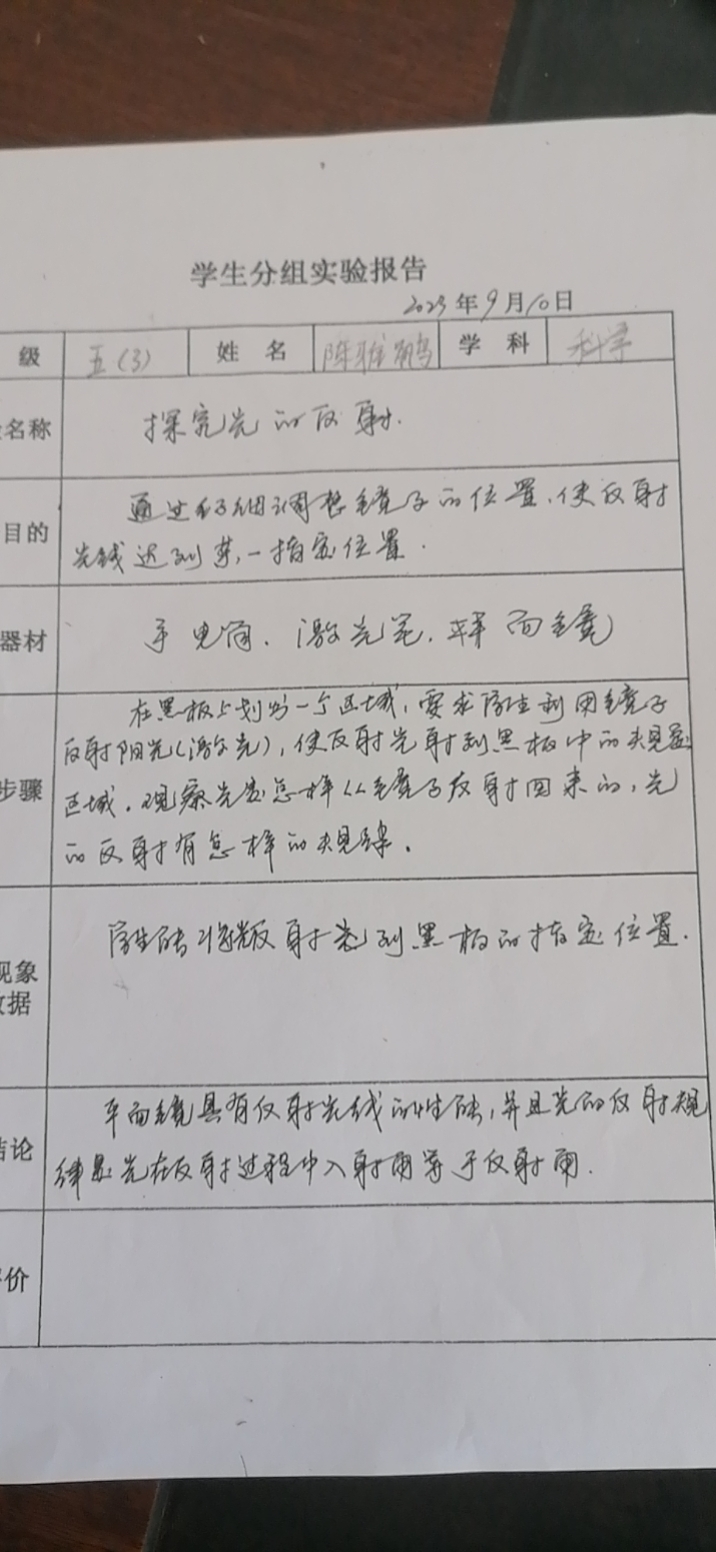 学生分组实验报告
2023年9月10日
级 五(3) 姓名 陈雅鹏 学科 科学
名称 探究光的反射.
目的 通过仔细调整镜子的位置,使反射
光线达到某一指定位置.
器材 手电筒、激光笔、平面镜
步骤 在黑板上划分一个区域,要求学生利用镜子
反射阳光(激光),使反射光射到黑板中的规定
区域.观察光是怎样从镜子反射回来的,光
的反射有怎样的规律.
现象
数据 学生能将反射光到黑板的指定位置.
结论 平面镜具有反射光线的性能,并且光的反射规
律是光在反射过程中入射角等于反射角.
价